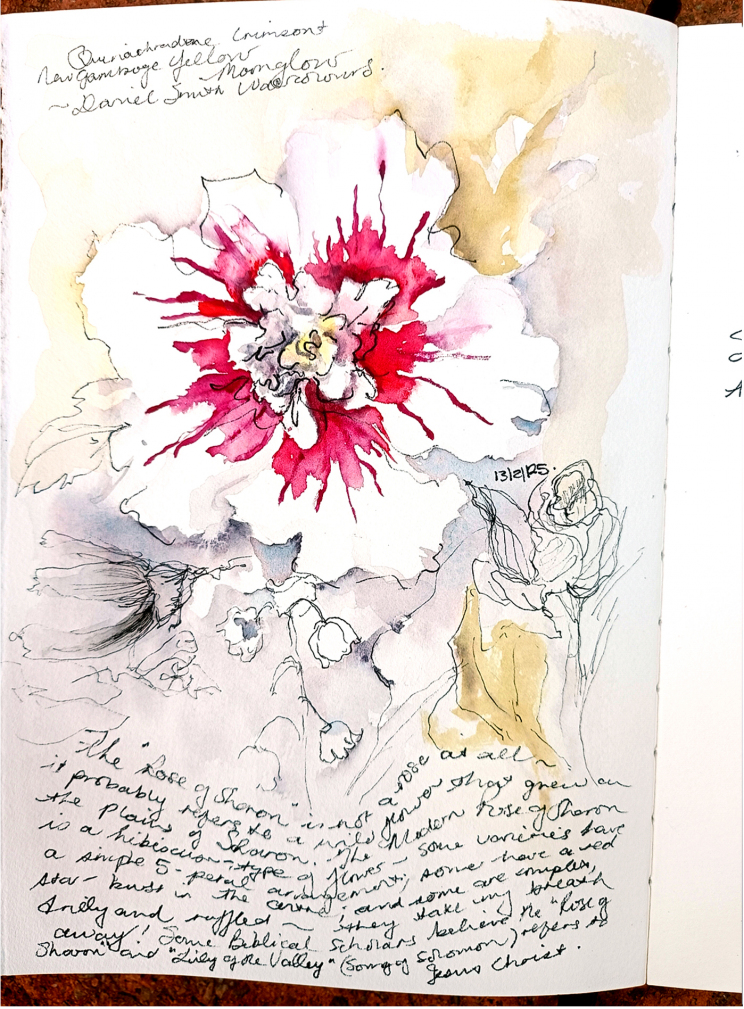 Quinachradone Crimson +
New Gamboge Yellow
Moonglow
~ Daniel Smith Watercolours.
13/2/25.
The "Rose of Sharon" is not a rose at all ~
it probably refers to a wild flower that grew on
the plains of Sharon. The Modern Rose of Sharon
is a hibiscus-type of flower - some varieties have
a simple 5-petal arrangement; some have a red
star-burst in the centre; and some are complex,
frilly and ruffled ~ they take my breath
away! Some Biblical Scholars believe the "Rose of
Sharon" and "Lily of the Valley" (Song of Solomon) refers to
Jesus Christ.